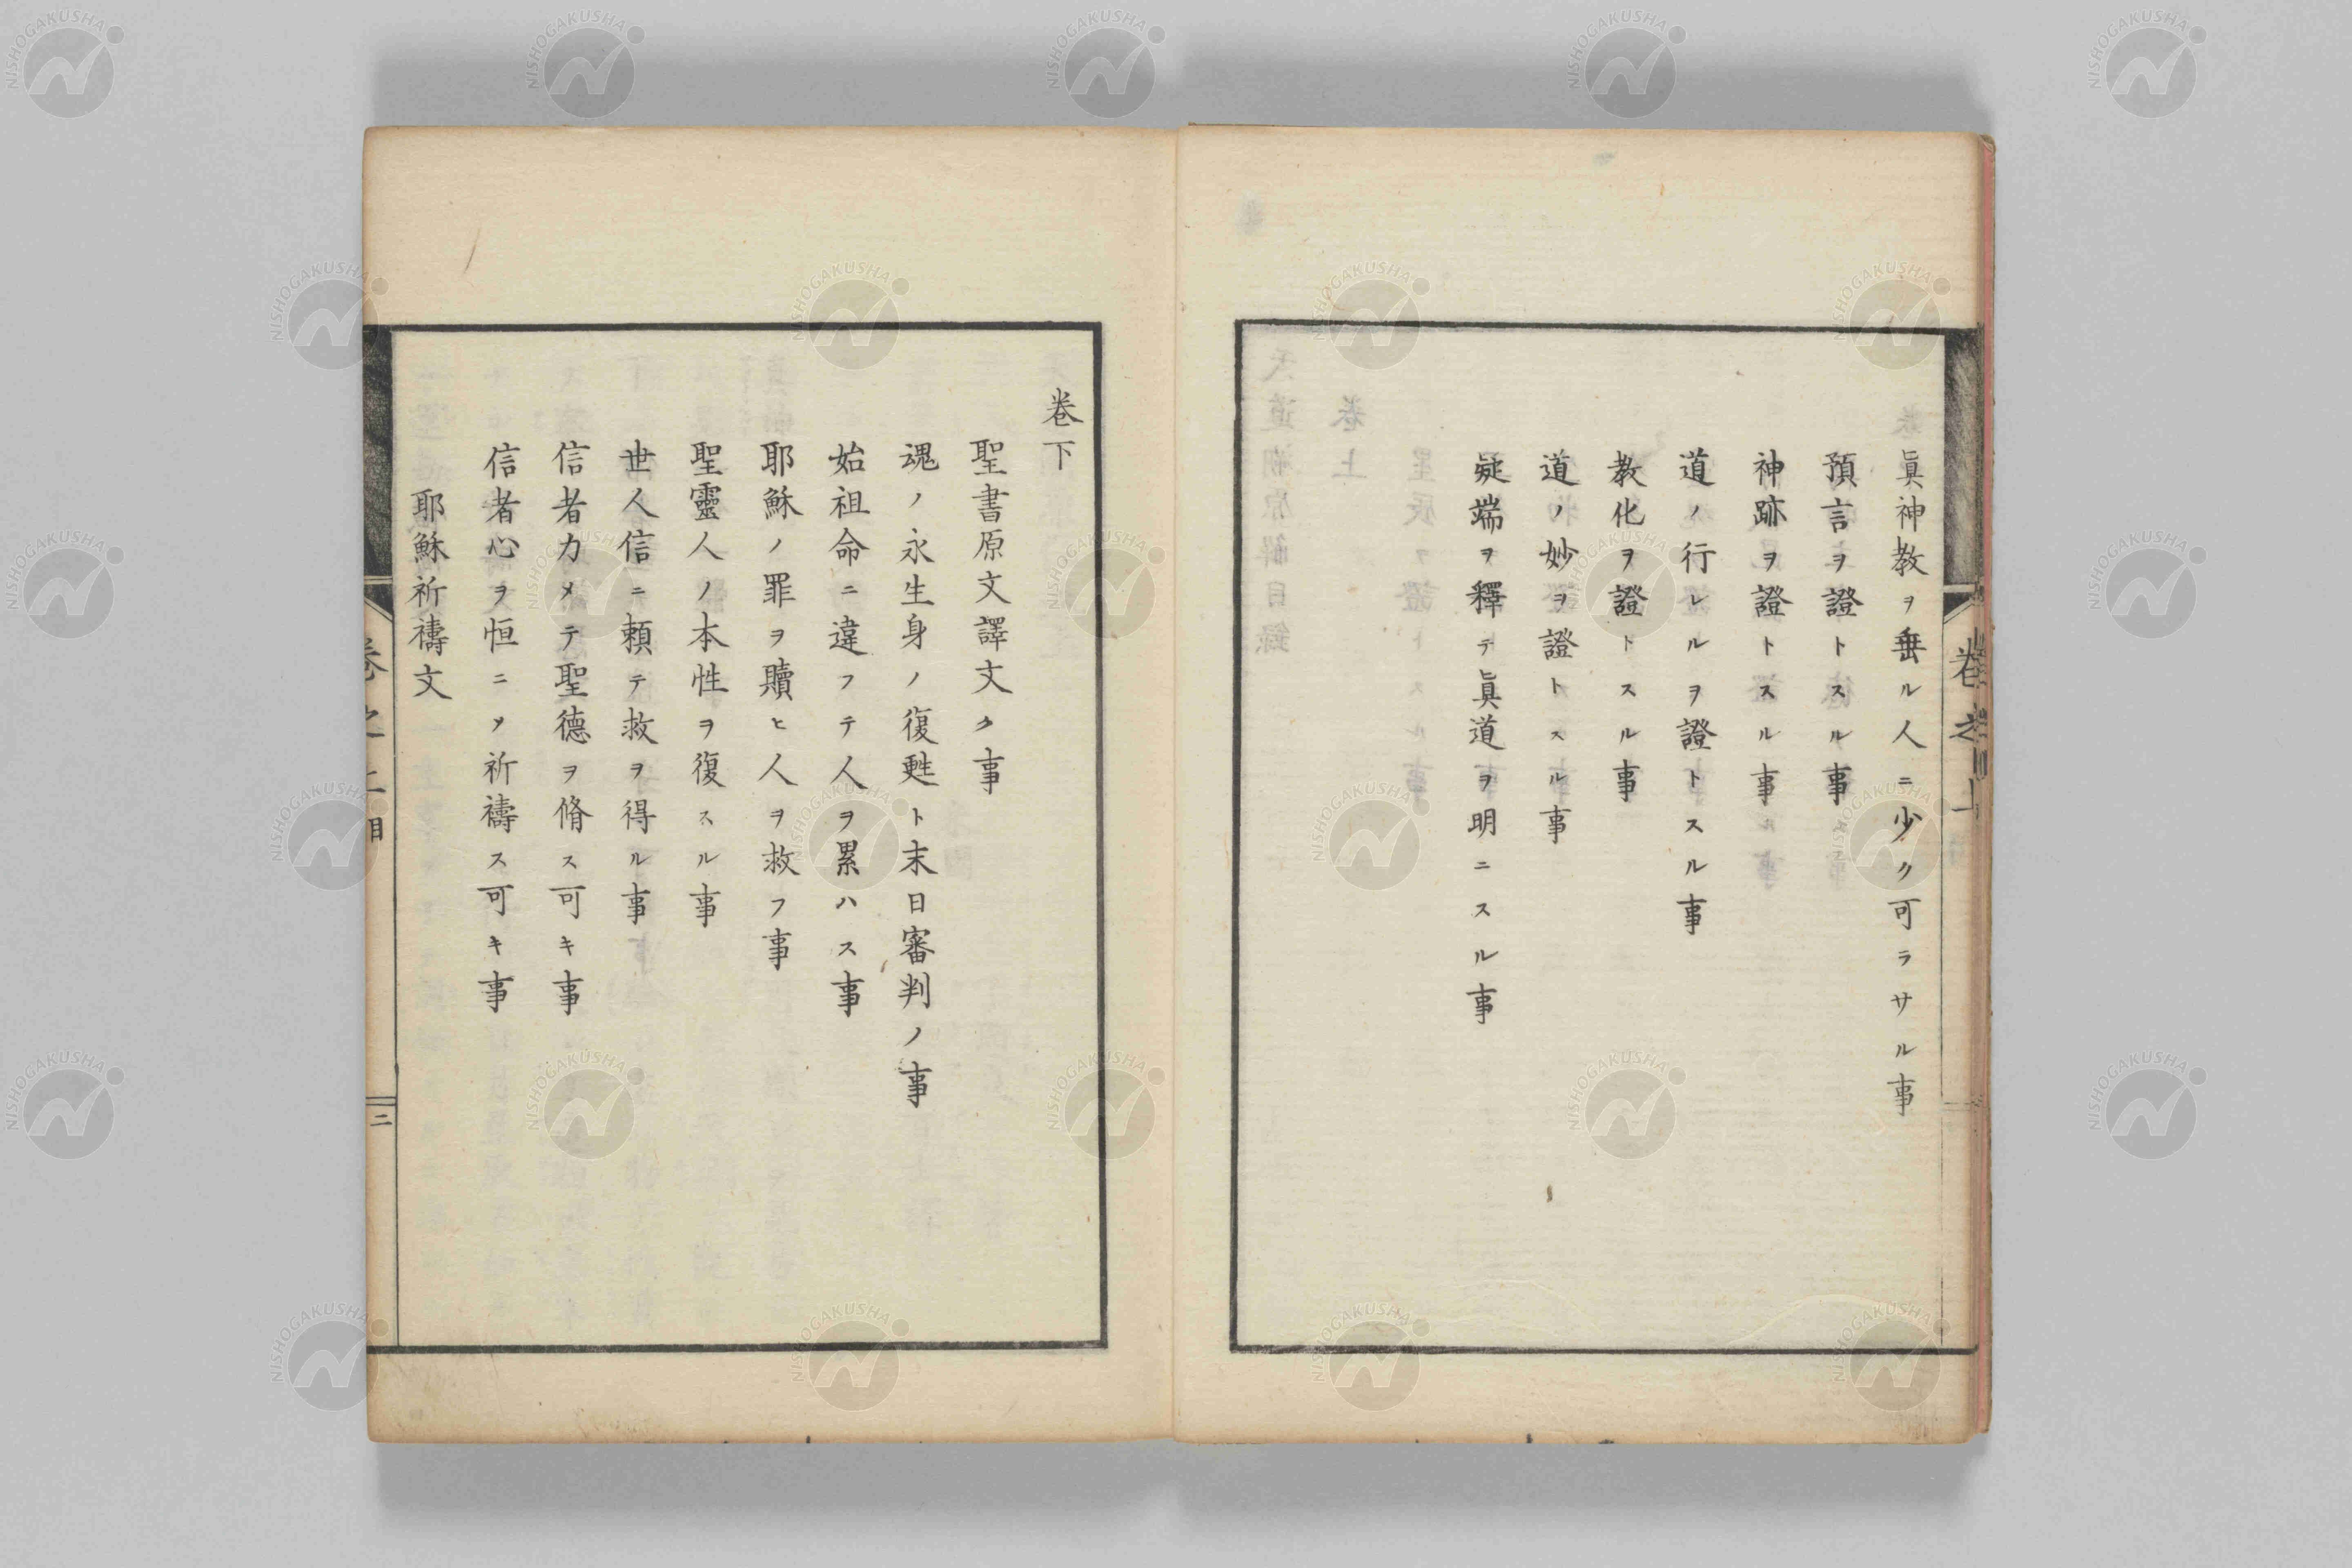 眞神教ヲ垂ル人ニ少ク可ラサル事
預言ヲ證トスル事
神跡ヲ證トスル事
道ノ行レルヲ證トスル事
教化ヲ證トスル事
道ノ妙ヲ證トスル事
疑端ヲ釋テ眞道ヲ明ニスル事
卷下
聖書原文譯文ノ事
魂ノ永生身ノ復甦ト末日審判ノ事
始祖命ニ違フテ人ヲ累ハス事
耶穌ノ罪ヲ贖ヒ人ヲ救フ事
聖靈人ノ本性ヲ復スル事
世人信ニ頼テ救ヲ得ル事
信者力メテ聖德ヲ脩ス可キ事
信者心ヲ恒ニメ祈禱ス可キ事
耶穌祈禱文
二
NISHOGAKUSHA